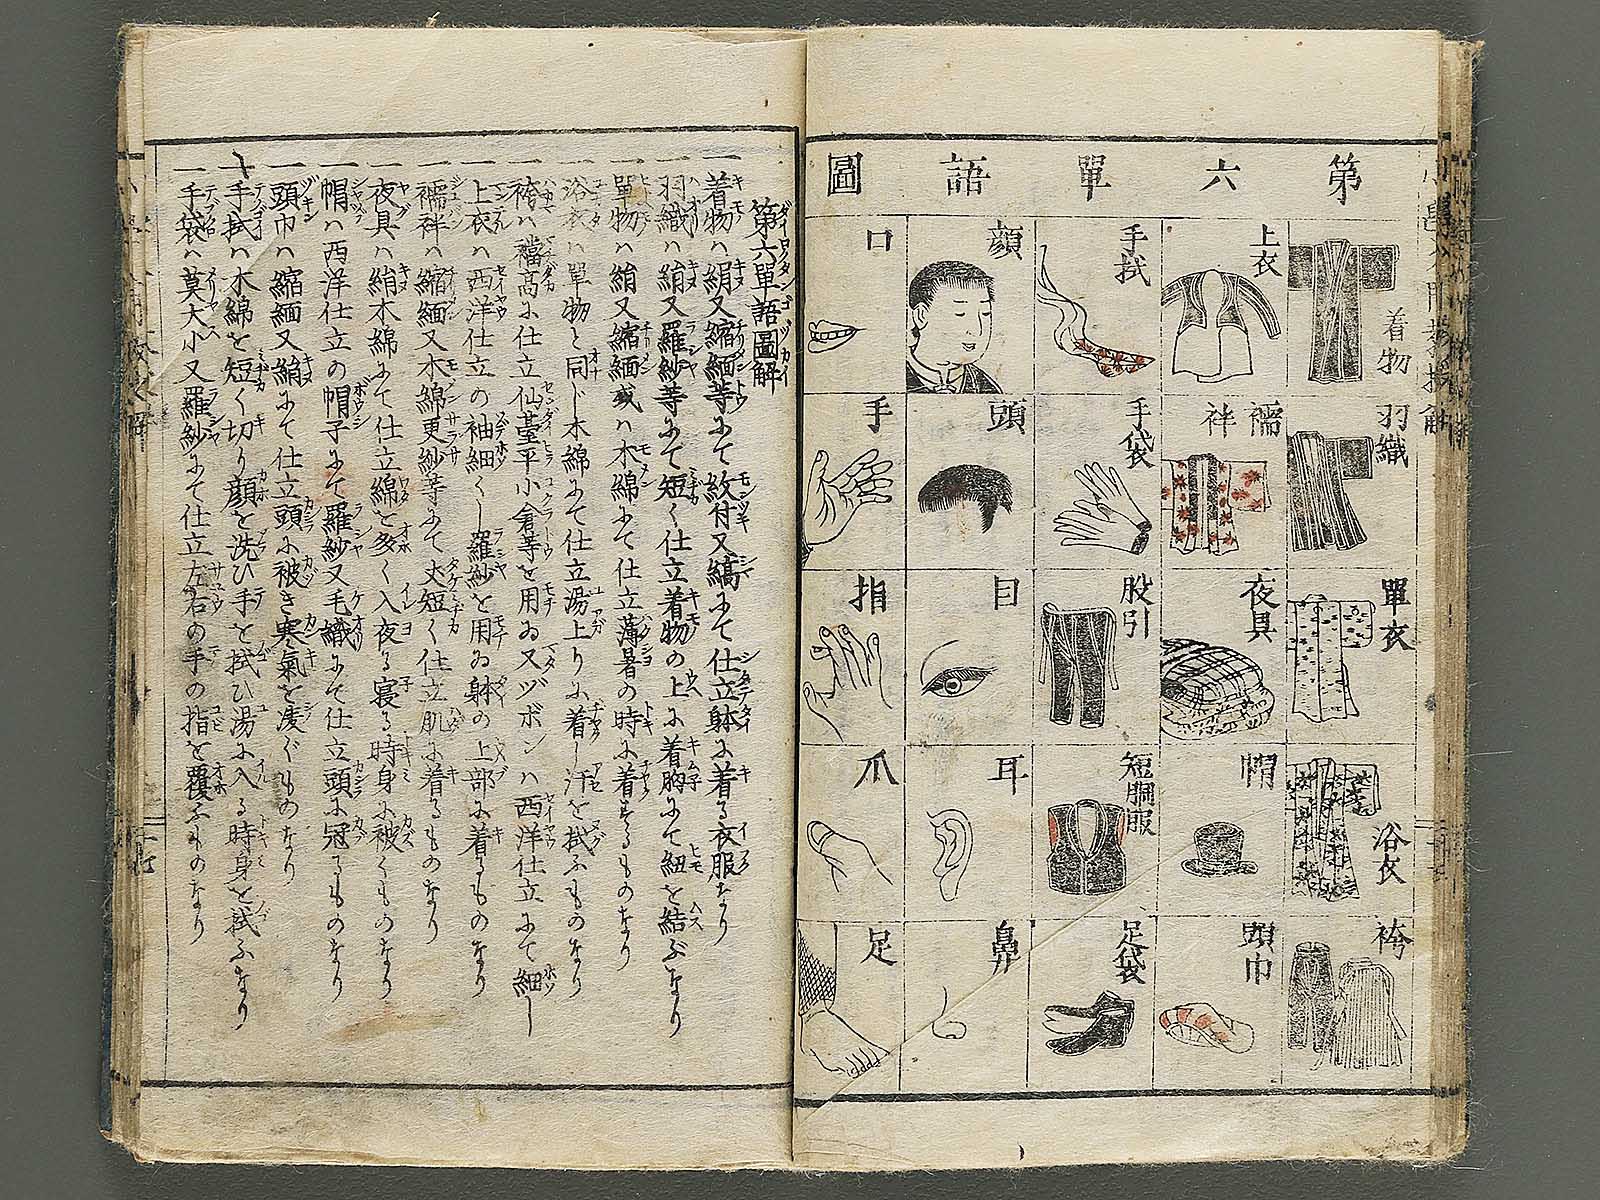 第六單語圖
着物
羽織
單衣
浴衣
袴
上衣
襦袢
夜具
帽
頭巾
手拭
手袋
股引
短胴服
足袋
顔
頭
目
耳
鼻
口
手
指
爪
足
第六單語圖解
一着物ハ絹又縮緬等にて紋付又縞にて仕立躰に着る衣服なり
一羽織ハ絹又羅紗等にて短く仕立着物の上に着胸にて紐を結ぶなり
一單物ハ絹又縮緬或ハ木綿にて仕立薄暑の時に着するものなり
一浴衣ハ單物と同じ木綿にて仕立湯上りに着し汗を拭ふものなり
一袴ハ襠高に仕立仙臺平小倉等を用ゐ又ヅボンハ西洋仕立にて細し
一上衣ハ西洋仕立の袖細くし羅紗を用ゐ躰の上部に着るものなり
一襦袢ハ縮緬又木綿更紗等にて丈短く仕立肌に着るものなり
一夜具ハ絹木綿にて仕立綿を多く入夜る寝る時身に被くものなり
一帽ハ西洋仕立の帽子にて羅紗又毛織にて仕立頭に冠るものなり
一頭巾ハ縮緬又絹にて仕立頭に被き寒氣を凌ぐものなり
一手拭ハ木綿を短く切り顔を洗ひ手を拭ひ湯に入る時身を拭ふなり
一手袋ハ莫大小又羅紗にて仕立左右の手の指を覆ふものなり